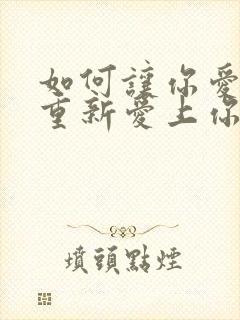 如何讓你愛
重新愛上你
墳頭點煙